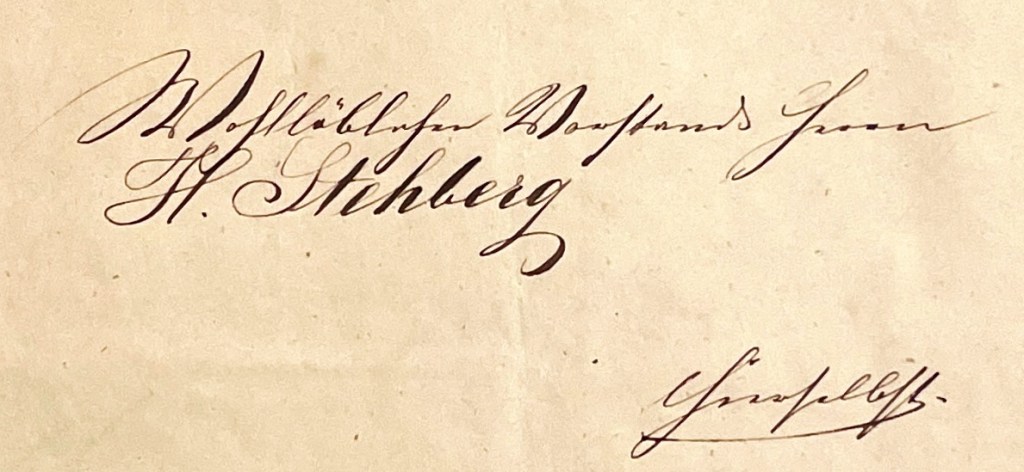 Wohllöblichen Vorstands Herrn
H. Stehberg
Hierselbst.